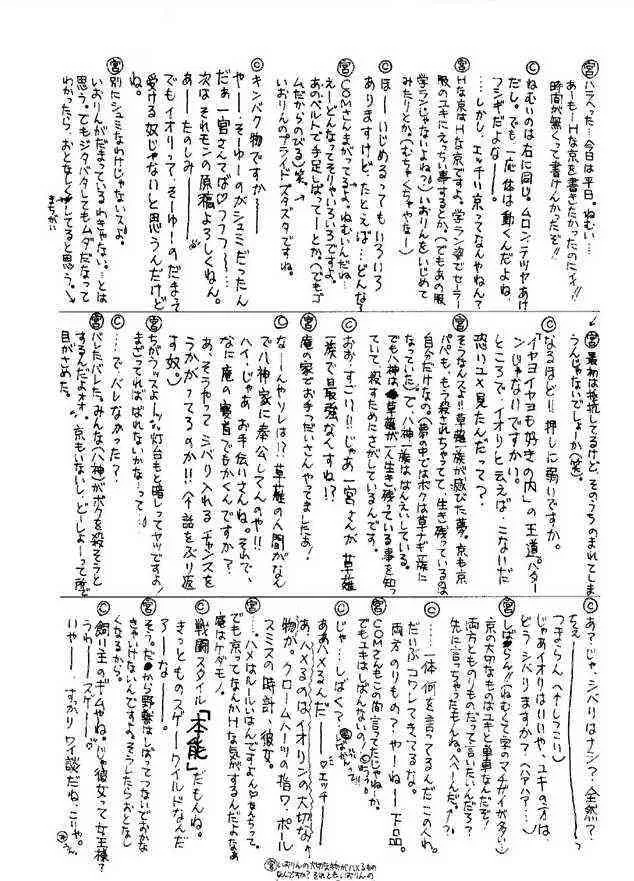 宮 ハラヘった…今日は平日。ねむ…
あーもーHな京を書きたかったのにィ!!
時間が無くって書けんかったぞ!!
© ねむいのは右に同じ。ムロン、テツヤあけ
だし。でも一応体は動くんだよね。
フシギだよなー
…しかし、エッチい京ってなんやねん?
宮 Hな京はHな京ですよ。学ラン姿でセーラー
服のユキにえっちい事するとか。(でもあの服、
学ランじゃないよね?)いおりんをいじめて
みたりとか。(むちゃくちゃやなー)
© ほーいじめるってもいろいろ
ありますけど、たとえば…どんな?
宮 COMさんまがってるよ。ねむいんだね…
えーどんなってそりゃいろいろですよ。
あのベルトで手足しばってーとか。(でもゴ
ムだからのびる)笑。
いおりんのプライドズタズタですね。
© キンバク物ですかー
やーそーゆーのがシュミだったん
だぁ一宮さんてば♡フフフ…
次はそれモノの原稿よろしくねん。
あーたのしみー
でもイオリって、そーゆーのだまって
受ける奴じゃないと思うんだけど
ね。
宮 別にシュミなわけじゃないスよ。
いおりんがだまっているわきゃない。…とは
思う。でもジタバタしてもムダだなって
わかったら、おとなしくしてると思う。
まちがい
宮 最初は抵抗してるけど、そのうちのまれてしま
うんじゃないでしょーか(笑)。
© 「イヤヨイヤヨも好きの内」の王道パター
ンじゃないですかい。
なるほど!!押しに弱いですか。
ところで、イオリと云えば、こないだ
恐いユメ見たんだって?
宮 そうなんスよ!!草薙一族が滅びた夢。京も京
パパも、もう殺されちゃってて、生き残っているのは
自分だけなの。(夢の中ではボクは草ナギ一族に
なっていた)で、八神一族ははんえいしている。
でも八神は草薙が一人生き残っている事を知っ
ていて殺すためにさがしているんです。
© おおすごい!!じゃあ一宮さんが草薙
一族で最強なんすね!?
宮 庵の家でお手つだいさんやってましたぁ!
© なーんやソレは!?草薙の人間がなん
で八神家に奉公してんのや!!
ハイ、じゃあお手伝いさんね。それで、
なに庵の寝首でもかくんですか?
あ、そうやってシバリ入れるチャンスを
うかがってろのか!!(今話をふり返
す奴)
宮 ちがうッスよーん。灯台もと暗しってヤツですよ!
まざってればばれないかなって…。
© …で、バレなかった?
宮 バレたバレた。みんな(八神)がボクを殺そうと
するんだよオオ。京もいないし、どーしよーって所で
目がさめた。
© あ?じゃ、シバリはナシ?全然?
ちぇー
つまらんへ(しつこい)
じゃあイオリはいいや、ユキの方は、
どうシバりますか?(ハァハァ…)
宮 しばらん!!(ねむくて字のマチガイが多い)
京の大切なものはユキと単車なんだぞ!
両方とものりものだって言いたいんだろ?
先に言っちゃったもんね。へへーんだ。
© …一体何を言ってるんだこの人わ。
だいぶコワレてきてるな。
両方のりもの?やーねー下品。
宮 COMさんもこの間言ってたじゃねか。
でもユキはしばんないの。
© じゃ…しばく?
ああハメるんだー♡エッチー
宮 あ、ハメるのはイオリンの大切な
物か。クロームハーツの指ワ、ポール
スミスの時計、彼女。
…ハメはルールはんですよん♡なんちって。
でも京ってなんかHな気がするんだよなぁ
庵はケダモノ。
© 戦闘スタイル「本能」だもんね。
きっとものスゲーワイルドなんだ
ろーな。
宮 そうだから野獣はしばってつないでおかな
きゃいけないんですよ。そうしたらおとなし
くなるから。
© 飼い主のキムやね。じゃ彼女って女王様?
うわースゲー
いやーすっかりワイ談だね、こりゃ。
宮 いおりんの大切な物がハメるもの